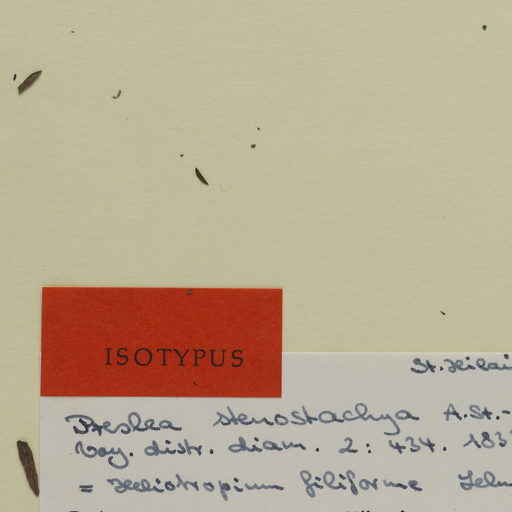 ISOTYPUS
St. Hilai
Preslea stenostachya A. St.-
Voy. distr. diam. 2: 434. 183
= Heliotropium filiforme Lehm